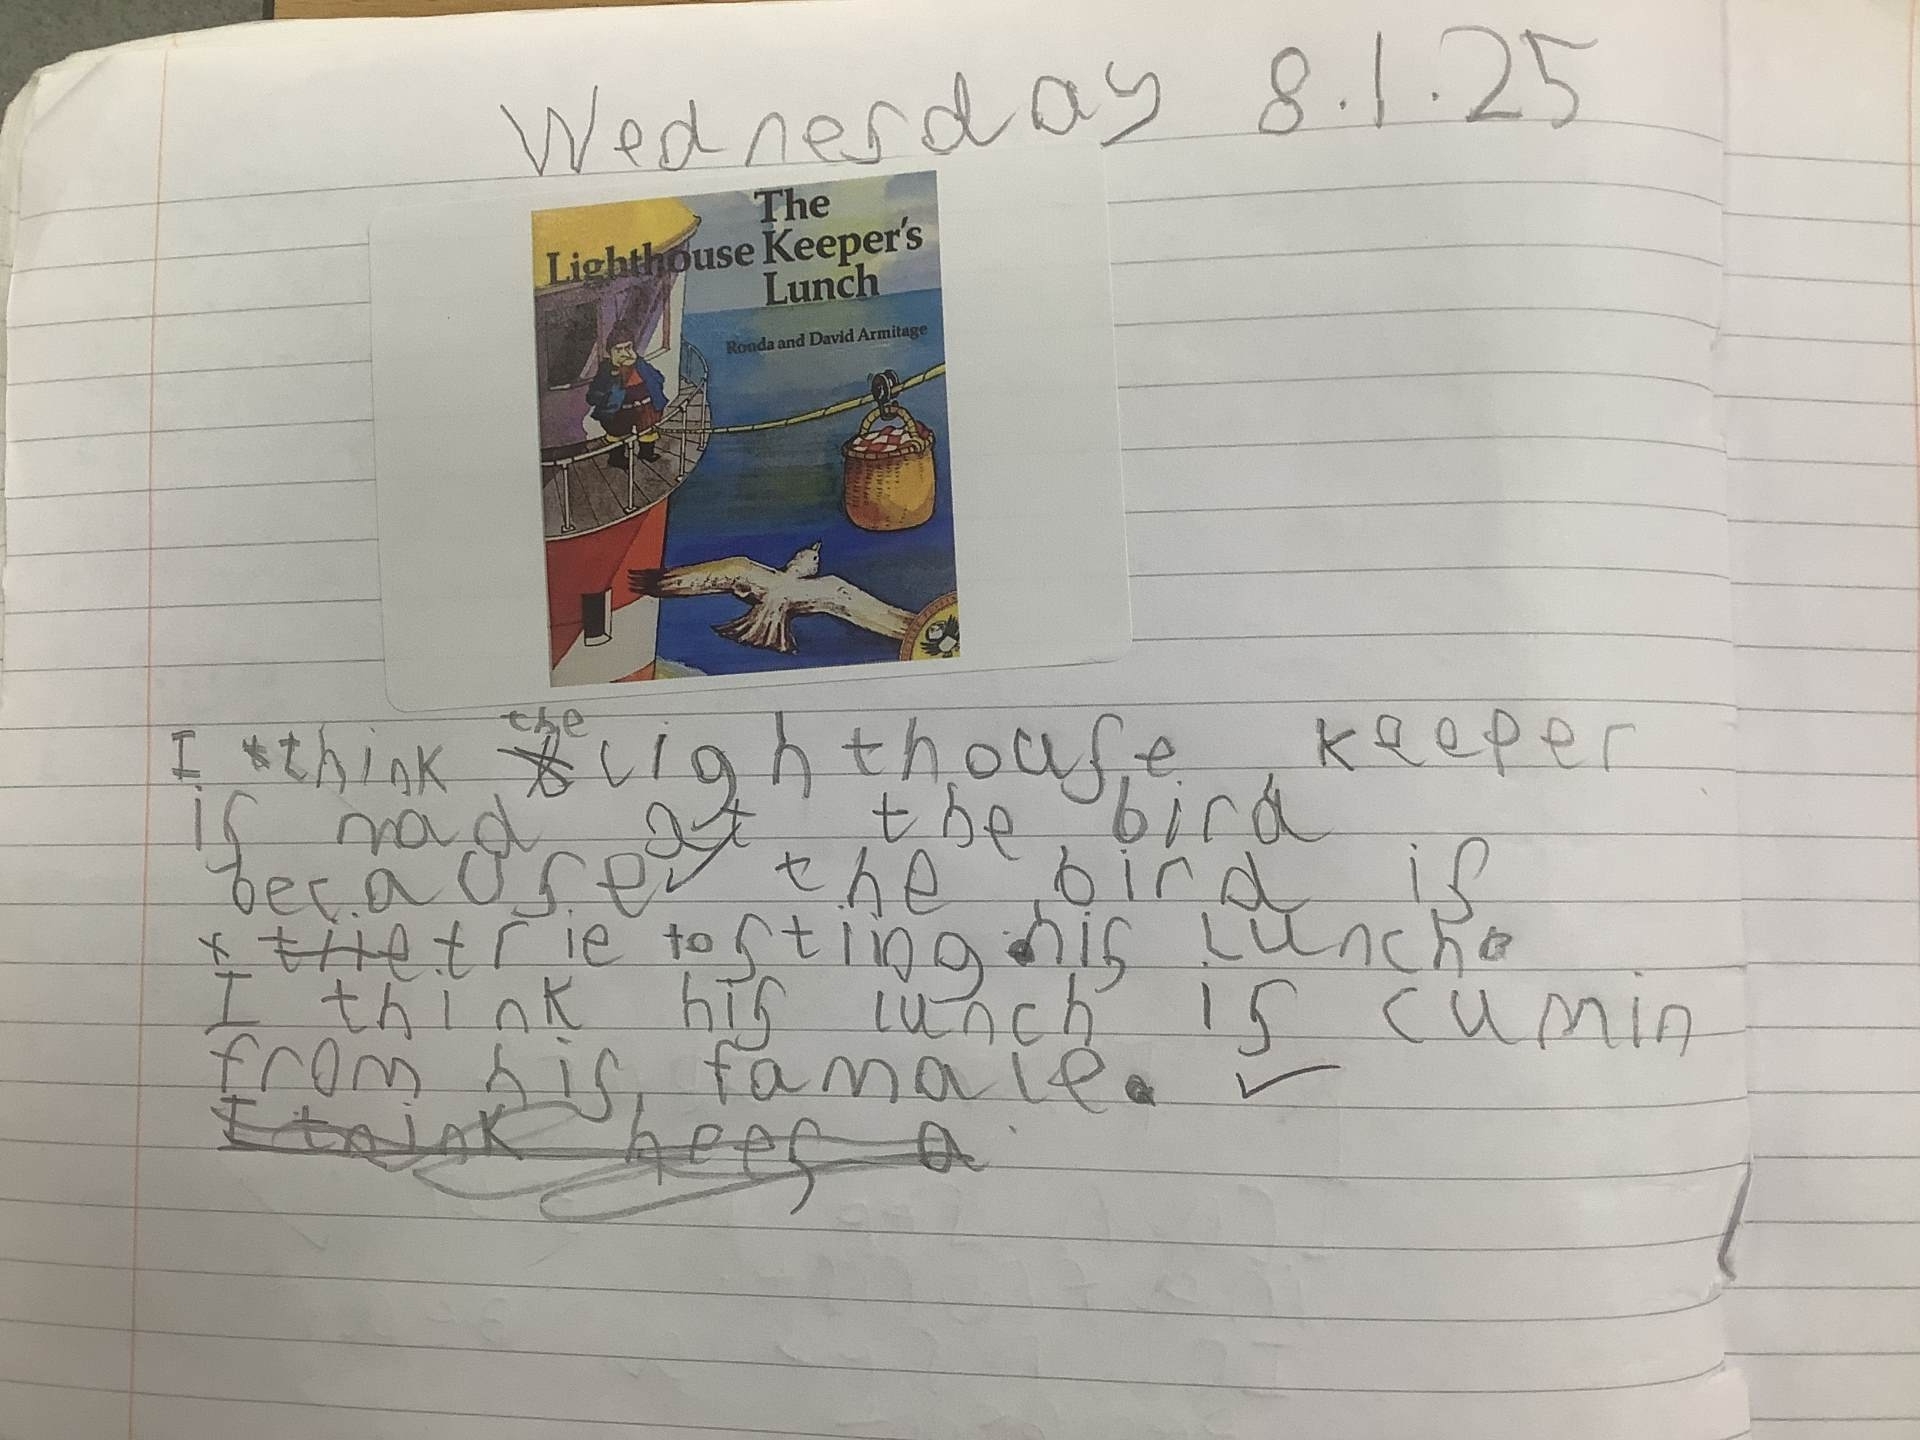 Wednesday 8.1.25
The
Lighthouse Keeper's
Lunch
Ronda and David Armitage
the
I think lighthouse keeper
is mad at the bird
because the bird is
trie to sting his lunch.
I think his lunch is cumin
from his famale.
I think hees a